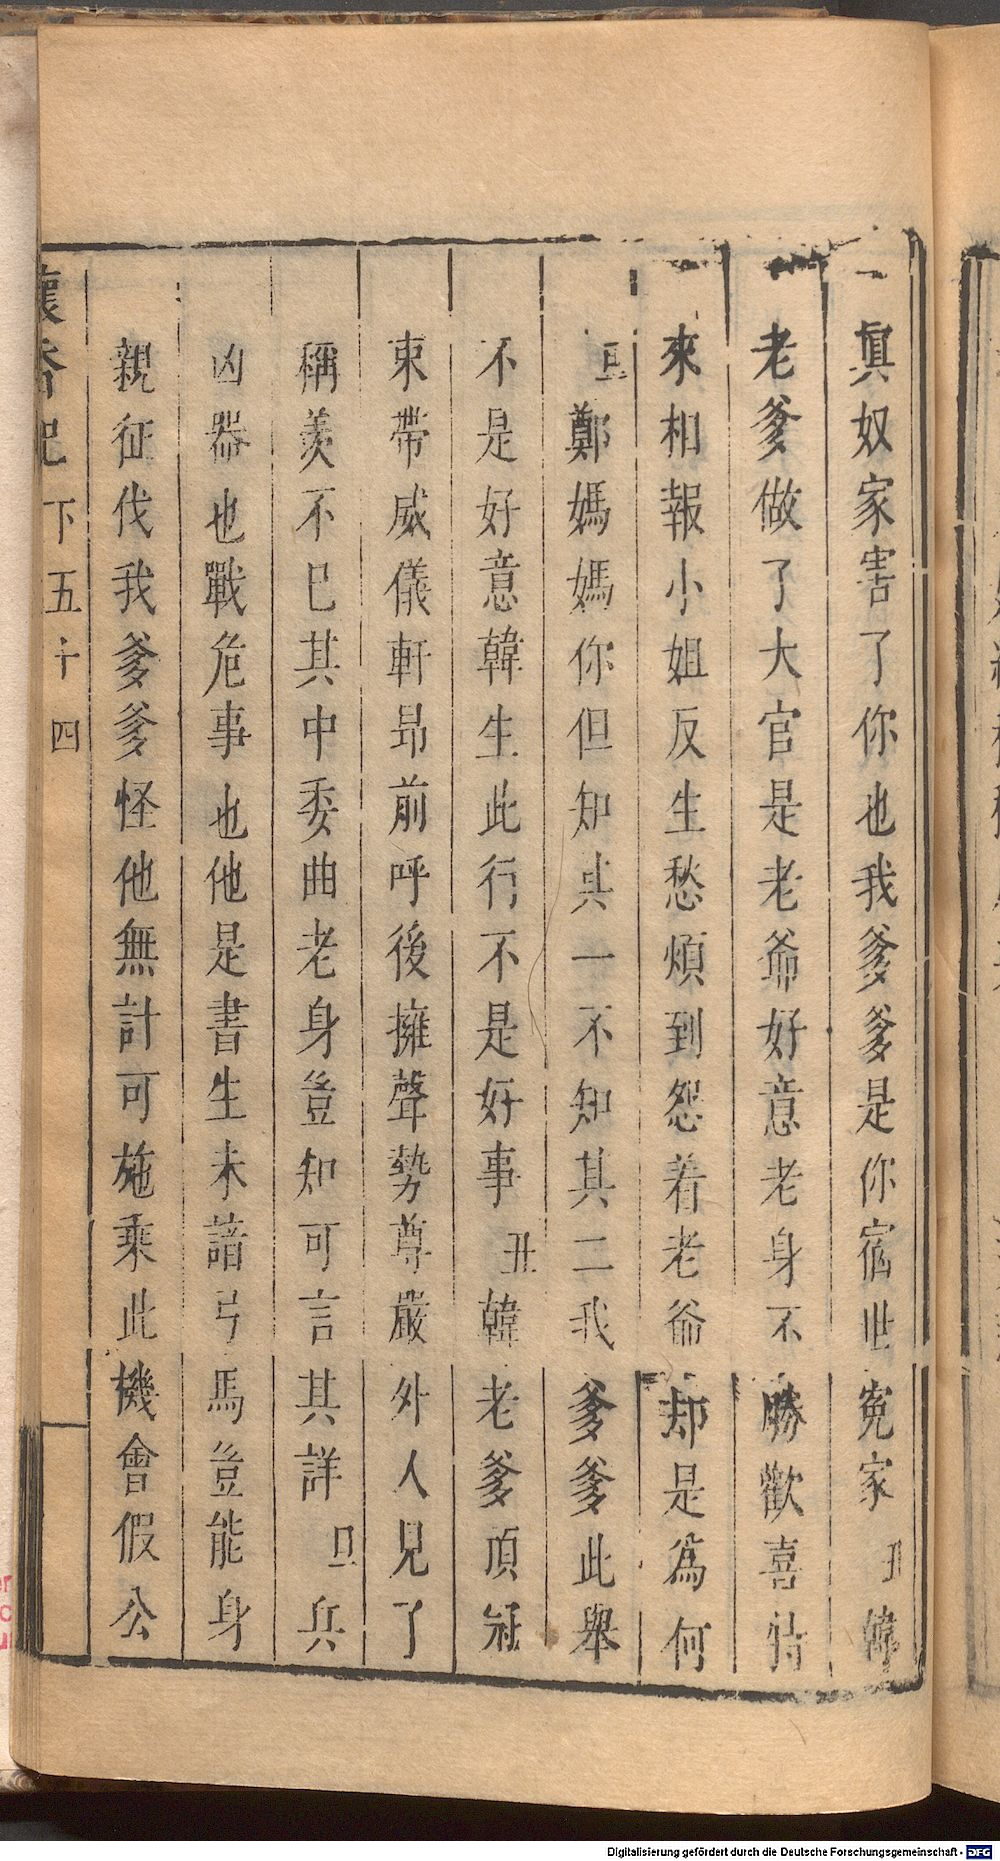 眞奴家害了你也我爹爹是你宿世寃家丑韓
老爹做了大官是老爺好意老身不勝歡喜特
來相報小姐反生愁煩到怨着老爺却是爲何
旦鄭媽媽你但知其一不知其二我爹爹此舉
不是好意韓生此行不是好事丑韓老爹頂冠
束帶威儀軒昂前呼後擁聲勢尊嚴外人見了
稱羨不已其中委曲老身豈知可言其詳旦兵
凶器也戰危事也他是書生未諳弓馬豈能身
親征伐我爹爹怪他無計可施乘此機會假公
懷香記 下 五十四
Digitalisierung gefördert durch die Deutsche Forschungsgemeinschaft - DFG